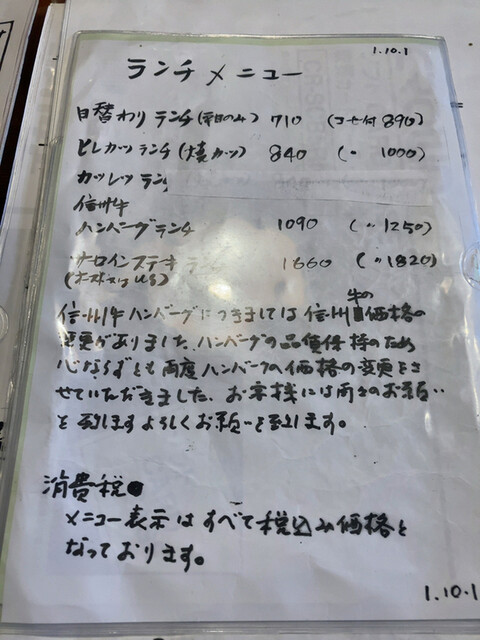 1.10.1
ランチメニュー
日替わりランチ(平日のみ) 710 (コーヒー付 890)
ヒレカツランチ(焼カツ) 840 (〃 1000)
カツレツ ラン
信州牛
ハンバーグランチ 1090 (〃1250)
サーロインステーキ 1660 (〃1820)
信州牛ハンバーグにつきましては信州牛の価格の
変更がありました、ハンバーグの品質保持のため
心ならずとも再度ハンバーグの価格の変更をさ
せていただきました、お客様には再々のお願い
を致しますよろしくお願いを致します。
消費税
メニュー表示はすべて税込み価格と
なっております。
1.10.1